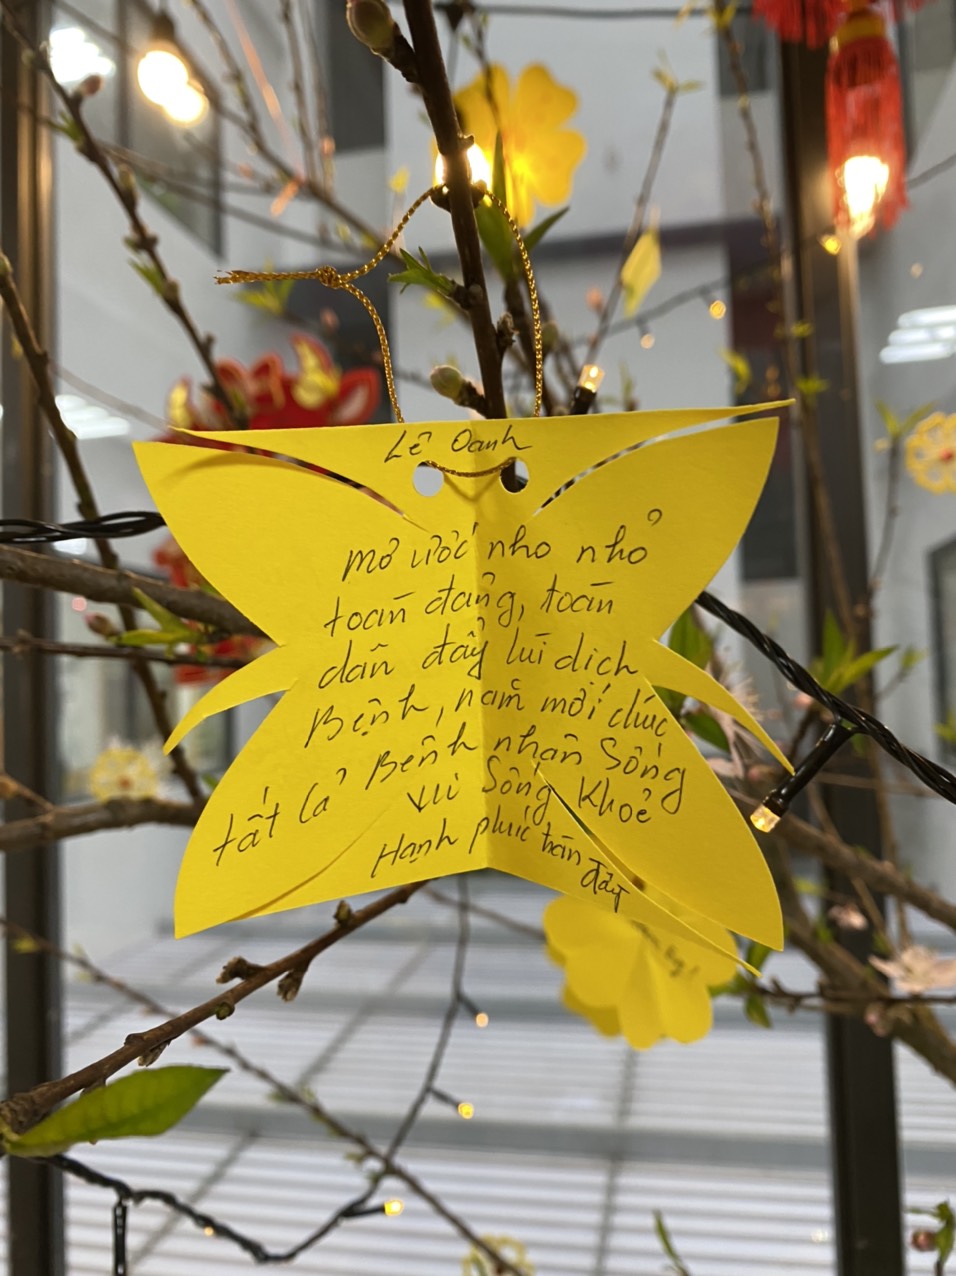 Lê Oanh
Mơ ước nho nhỏ
toàn đảng, toàn
dân đẩy lùi dịch
Bệnh, năm mới chúc
tất cả Bệnh nhân Sống
vui Sống Khoẻ
Hạnh phúc tràn
đầy